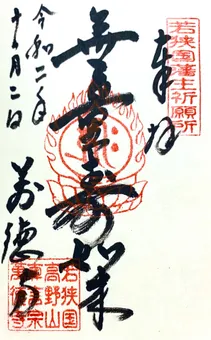 奉拝
若狭国藩主祈願所
無量壽如来
令和二年
十一月二日
萬徳寺
若狭国
高野山
真言宗
萬徳寺